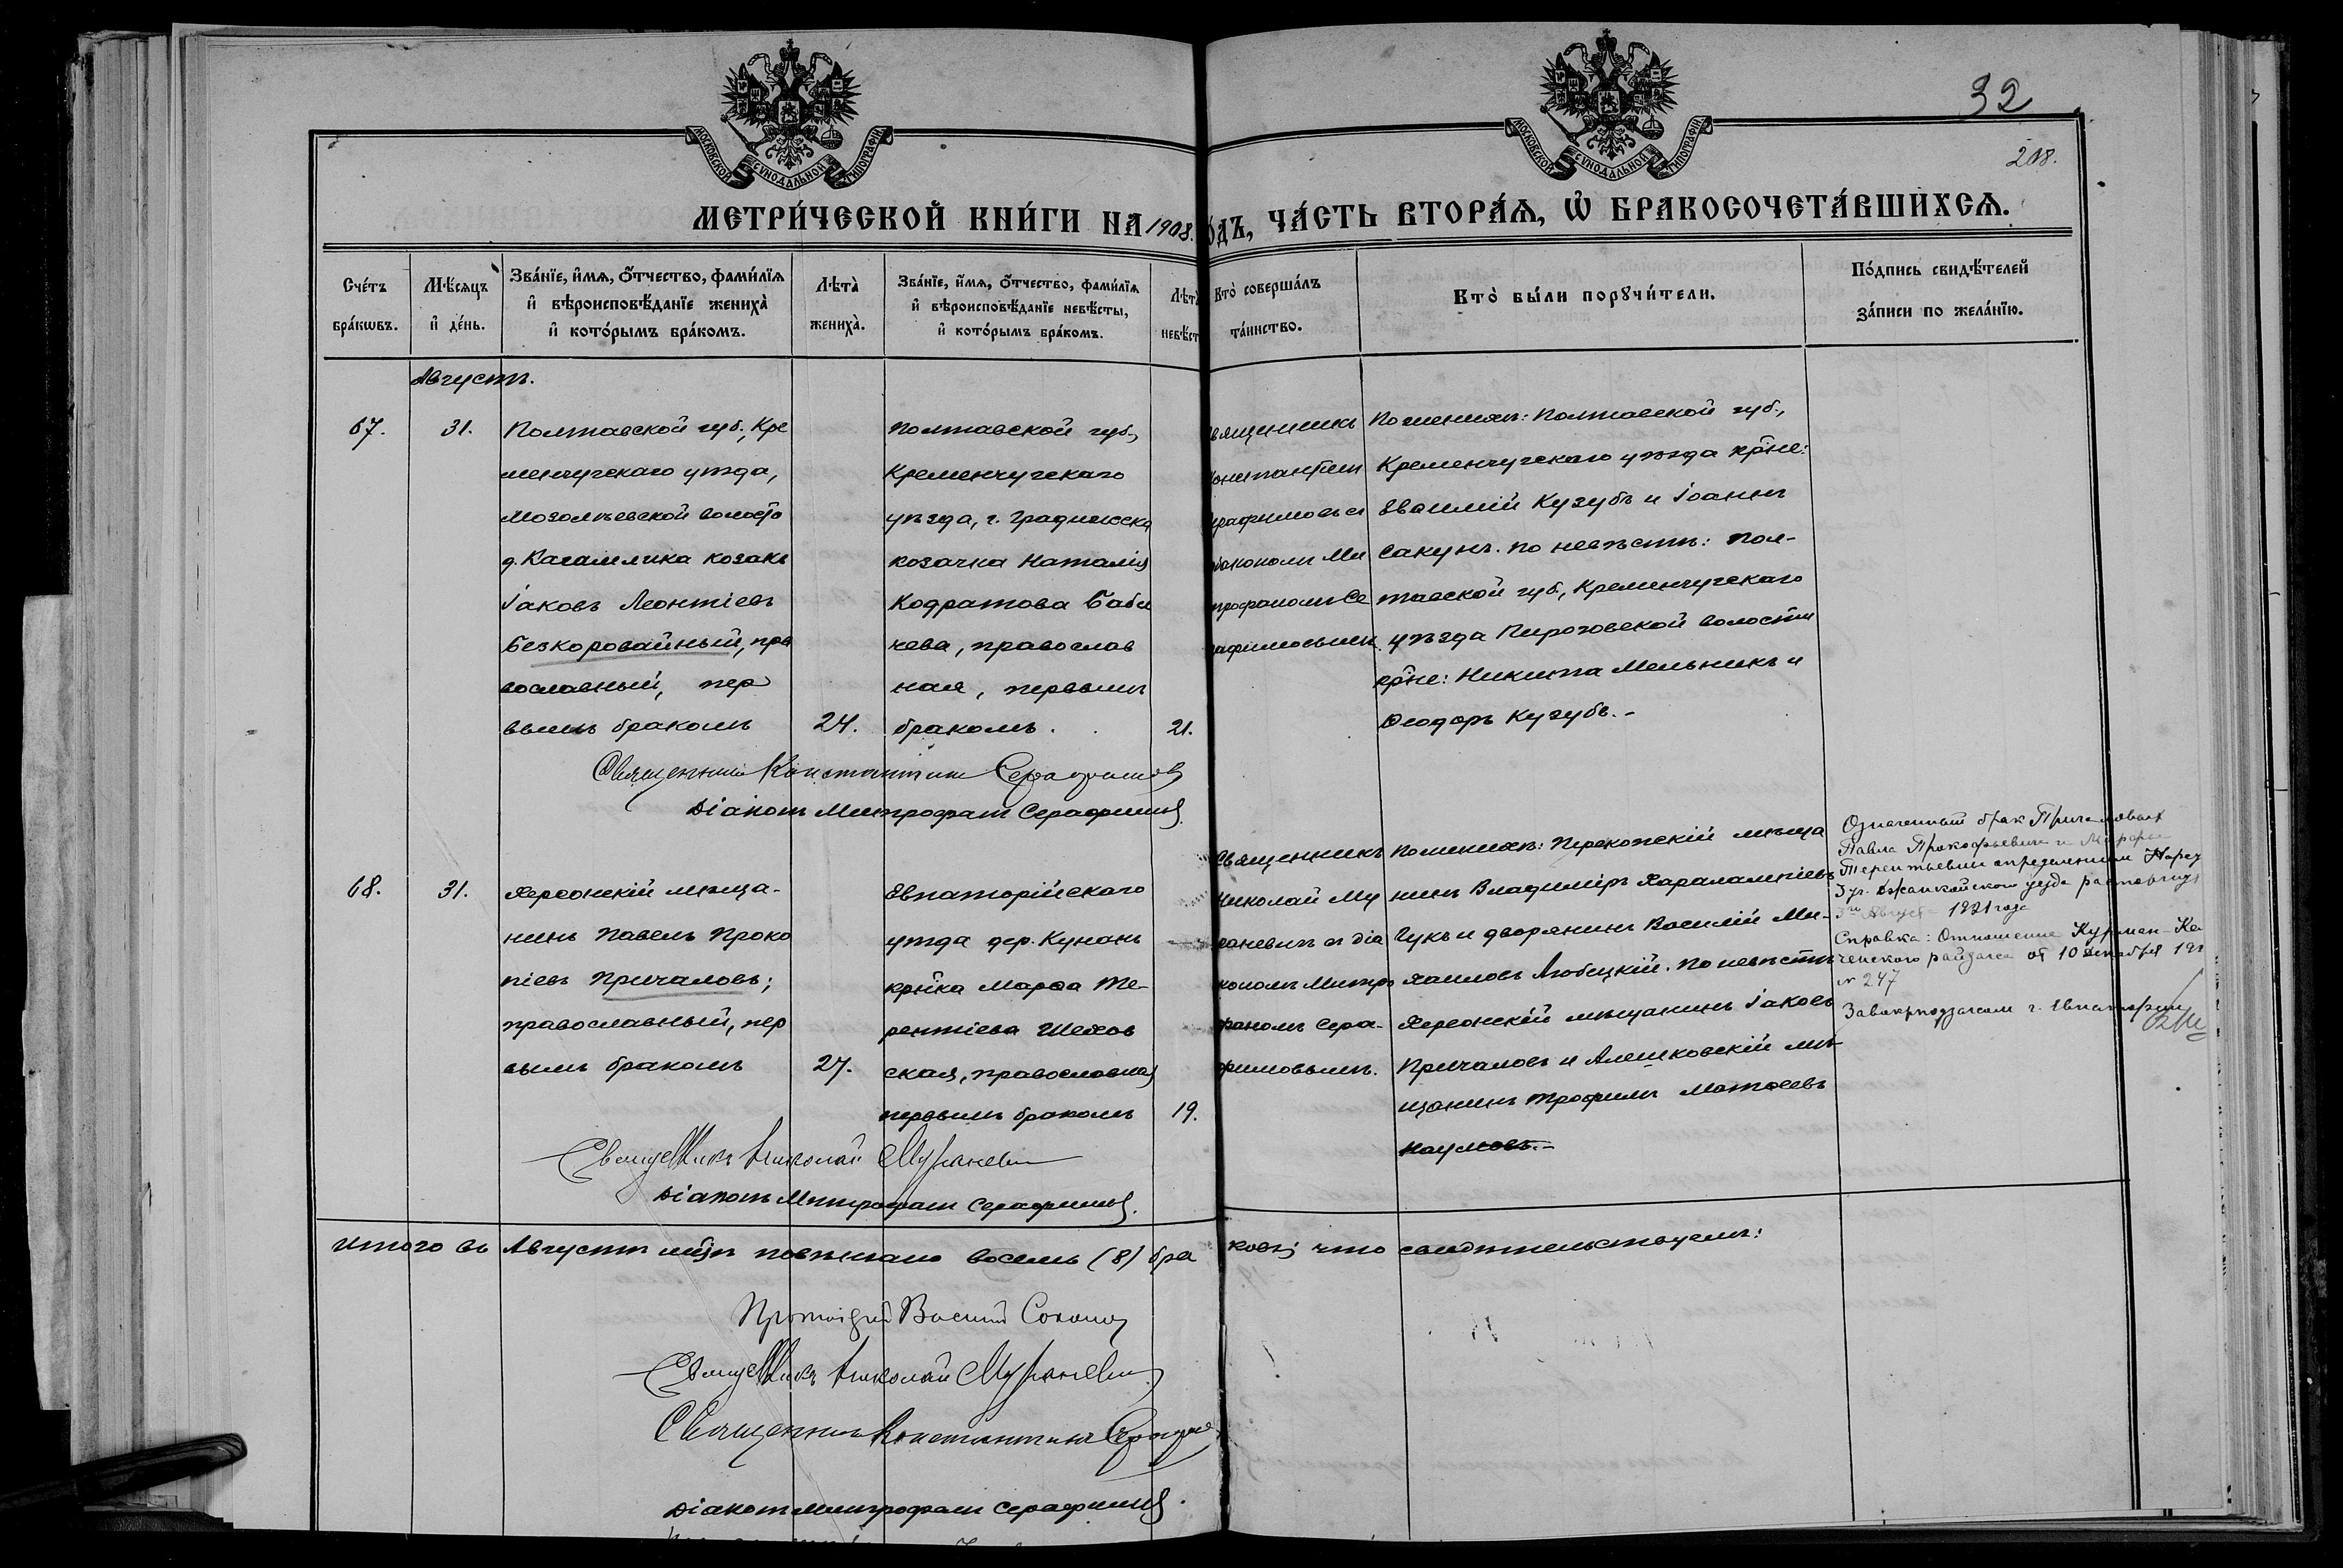 МОСКОВСКОЙ СУНОДАЛЬНОЙ ТИПОГРАФІИ
МОСКОВСКОЙ СУНОДАЛЬНОЙ ТИПОГРАФІИ
32
208.
МЕТРИ́ЧЕСКОЙ КНИ́ГИ НА 1908.
О́ДЪ, ЧА́СТЬ ВТОРА́Ѧ, Ѽ БРАКОСОЧЕТА́ВШИХСѦ.
Сче́тъ бра́кѡвъ.
Мѣ́сяцъ и҆ де́нь.
Зва́нїе, и҆́мѧ, ѻ҆́тчество, фами́лїѧ
и҆ вѣроисповѣ́данїе жениха̀
и҆ кото́рымъ бра́комъ.
Лѣта̀
жениха̀.
Зва́нїе, и҆́мѧ, ѻ҆́тчество, фами́лїѧ
и҆ вѣроисповѣ́данїе невѣ́сты,
и҆ кото́рымъ бра́комъ.
Лѣта̀
невѣ́ст
Кто̀ соверша́лъ
та́инство.
Кто̀ бы́ли порꙋчи́тели.
По́дпись свидѣ́телей
за́писи по жела́нїю.
Августъ.
67.
31.
Полтавской губ., Кре
менчугскаго уѣзда,
Мозолѣевской волости
д. Кагамлика козакъ
Іаковъ Леонтіевъ
Безкоровайный, пра
вославный, пер
вымъ бракомъ
24.
Полтавской губ.,
Кременчугскаго
уѣзда, г. Градижска
козачка Наталія
Кодратова Баби
чева, православ
ная, первымъ
бракомъ.
21.
вященникъ
Константин
ерафимовъ съ
діакономъ Ми
трофаномъ Се
афимовымъ.
По женихѣ: Полтавской губ.,
Кременчугскаго уѣзда кр̃не:
Евсилій Кузубъ и Іоаннъ
Сакунъ. По невѣстѣ: Пол-
тавской губ., Кременчугскаго
уѣзда Пироговской волости
кр̃не: Никита Мельникъ и
Ѳеодоръ Кузубъ.-
Священникъ Константинъ Серафимовъ
Діаконъ Митрофанъ Серафимовъ.
68.
31.
Херсонскій мѣща-
нинъ Павелъ Проко
піевъ Причаловъ;
православный, пер
вымъ бракомъ
27.
Евпаторійскаго
уѣзда дер. Кунанъ
кр̃нка Марѳа Те-
рентіева Шехов
ская, православная
первымъ бракомъ
19.
Священникъ
Николай Му
раневичъ съ діа
кономъ Митро
фаномъ Сера-
фимовымъ.
По женихѣ: Перекопскій мѣща
нинъ Владиміръ Харалампіевъ
Гукъ и дворянинъ Василій Ми-
хаиловъ Любецкій. По невѣстѣ
Херсонскій мѣщанинъ Іаковъ
Причаловъ и Алешковскій мѣ-
щанинъ Трофимъ Матѳеевъ
Наумовъ.-
Означенный брак Причаловых
Павла Прокофьевича и Марфы
Терентьевны определением Нарсуд
3 уч. Джанкойского уезда расторгнут
3го Августа 1921 года
Справка: Отношение Курман-Ке
мельчского райзагса от 10 декабря 192
№ 247
Завокрподзагсом г. Евпатории
Священникъ Николай Мураневичъ
Діаконъ Митрофанъ Серафимовъ.
Итого въ Августѣ мц̃ѣ повѣнчано восемь (8) бра
ковъ; что свидѣтельствуемъ:
Протоіерей Василій
Священникъ Николай Мураневичъ
Священникъ Константинъ Серафимовъ
Діаконъ Митрофанъ Серафимовъ.